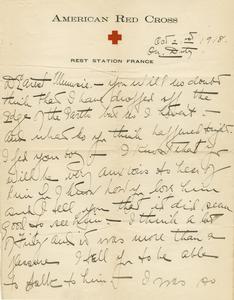 AMERICAN RED CROSS
REST STATION FRANCE
Oct 2nd 1918.
On Duty
Dearest Mumsie - you will no doubt
think that I have dropped off the
edge of the Earth but I
and what do you think happened
I fed your boy - I know that you
will be very anxious to hear of
him I know how you love him
and I tell you that it did seem
good to see him - I think a lot
of and it was more than a
pleasure I tell you to be able
to talk to him - I was so